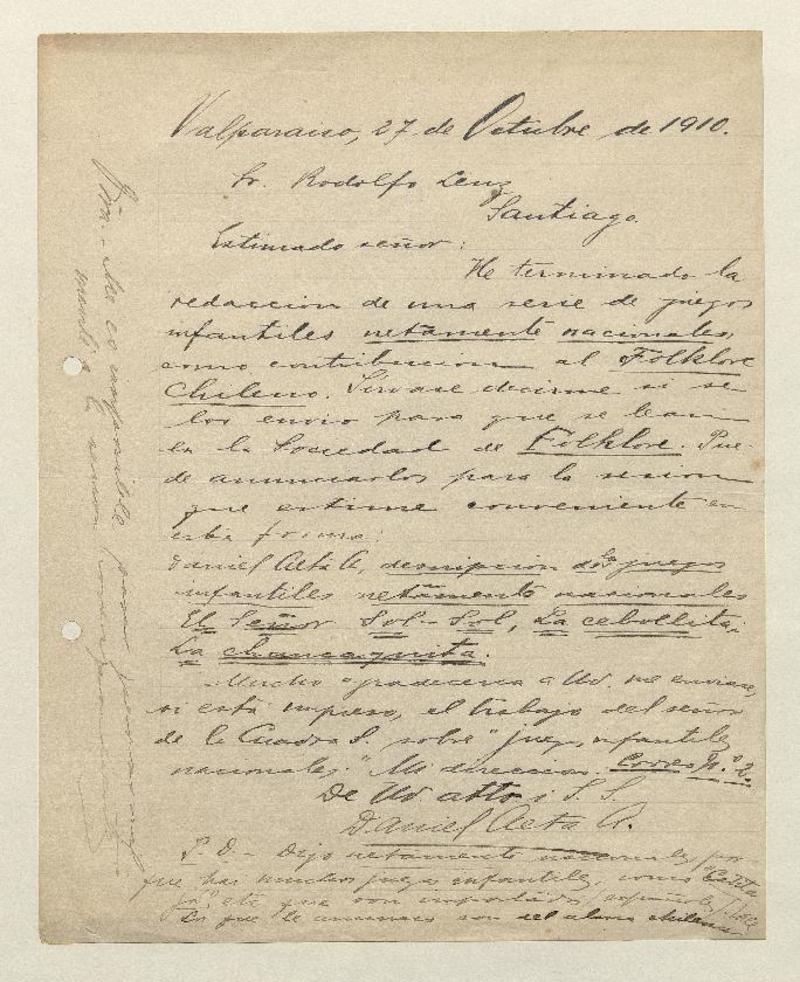 Valparaiso, 27 de Octubre de 1910.
Sr. Rodolfo Lenz
Santiago.
Estimado señor:
He terminado la
redaccion de una serie de juegos
infantiles netamente nacionales,
como contribucion al Folklore
Chileno. Sirvase decirme si se
los envio para que se lean
en la Sociedad de Folklore. Pue-
de anunciarlos para la sesion
que estime conveniente en
esta forma:
Daniel Aeta A, descripcion de los juegos
infantiles netamente nacionales
El Señor Sol-Sol, La cebollita,
La chancaquita.
Mucho agradeceria a Ud. me enviase,
si está impreso, el trabajo del señor
de la Cuadra S. sobre "juegos infantiles
nacionales." Mi direccion: Correo N.º 2.
De Ud. atto i S. S.
Daniel Aeta A.
P. D. - Digo netamente nacionales, por-
que hai muchos juegos infantiles, como
etc que son importados, españoles,
Los que le anuncio son del alma chilena
me es imposible para
mandé a la sesion